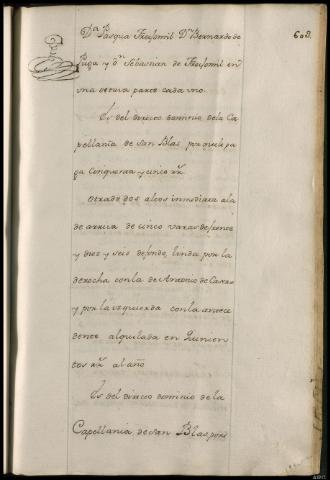 Dª Pasqua Freisomil Dⁿ Bernardo de
608.
Puga y Dⁿ Sebastian de Freisomil en
una octava parte cada uno.
Es del directo dominio de la Ca
pellania de San Blas por que le pa
ga cinquenta y cinco rˢ
Otra de dos altos inmediata a la
de arriva de cinco varas de frente
y diez y seis de fondo, linda por la
derecha con la de Antonio de Castro
y por la izquierda con la antece
dente alquilada en Quinien
tos rˢ al año
Es del directo dominio de la
Capellania de San Blas, por